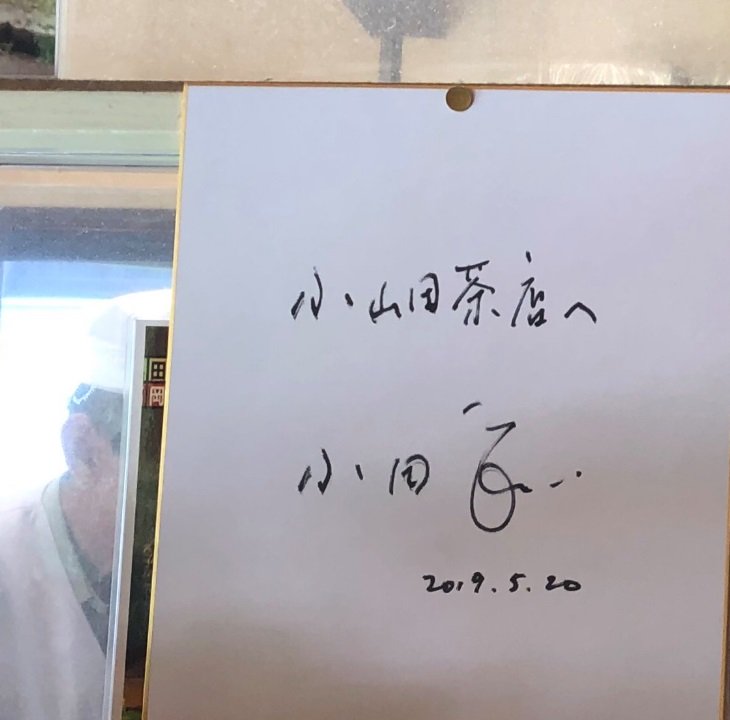 小山田茶店へ
小田
2019.5.20